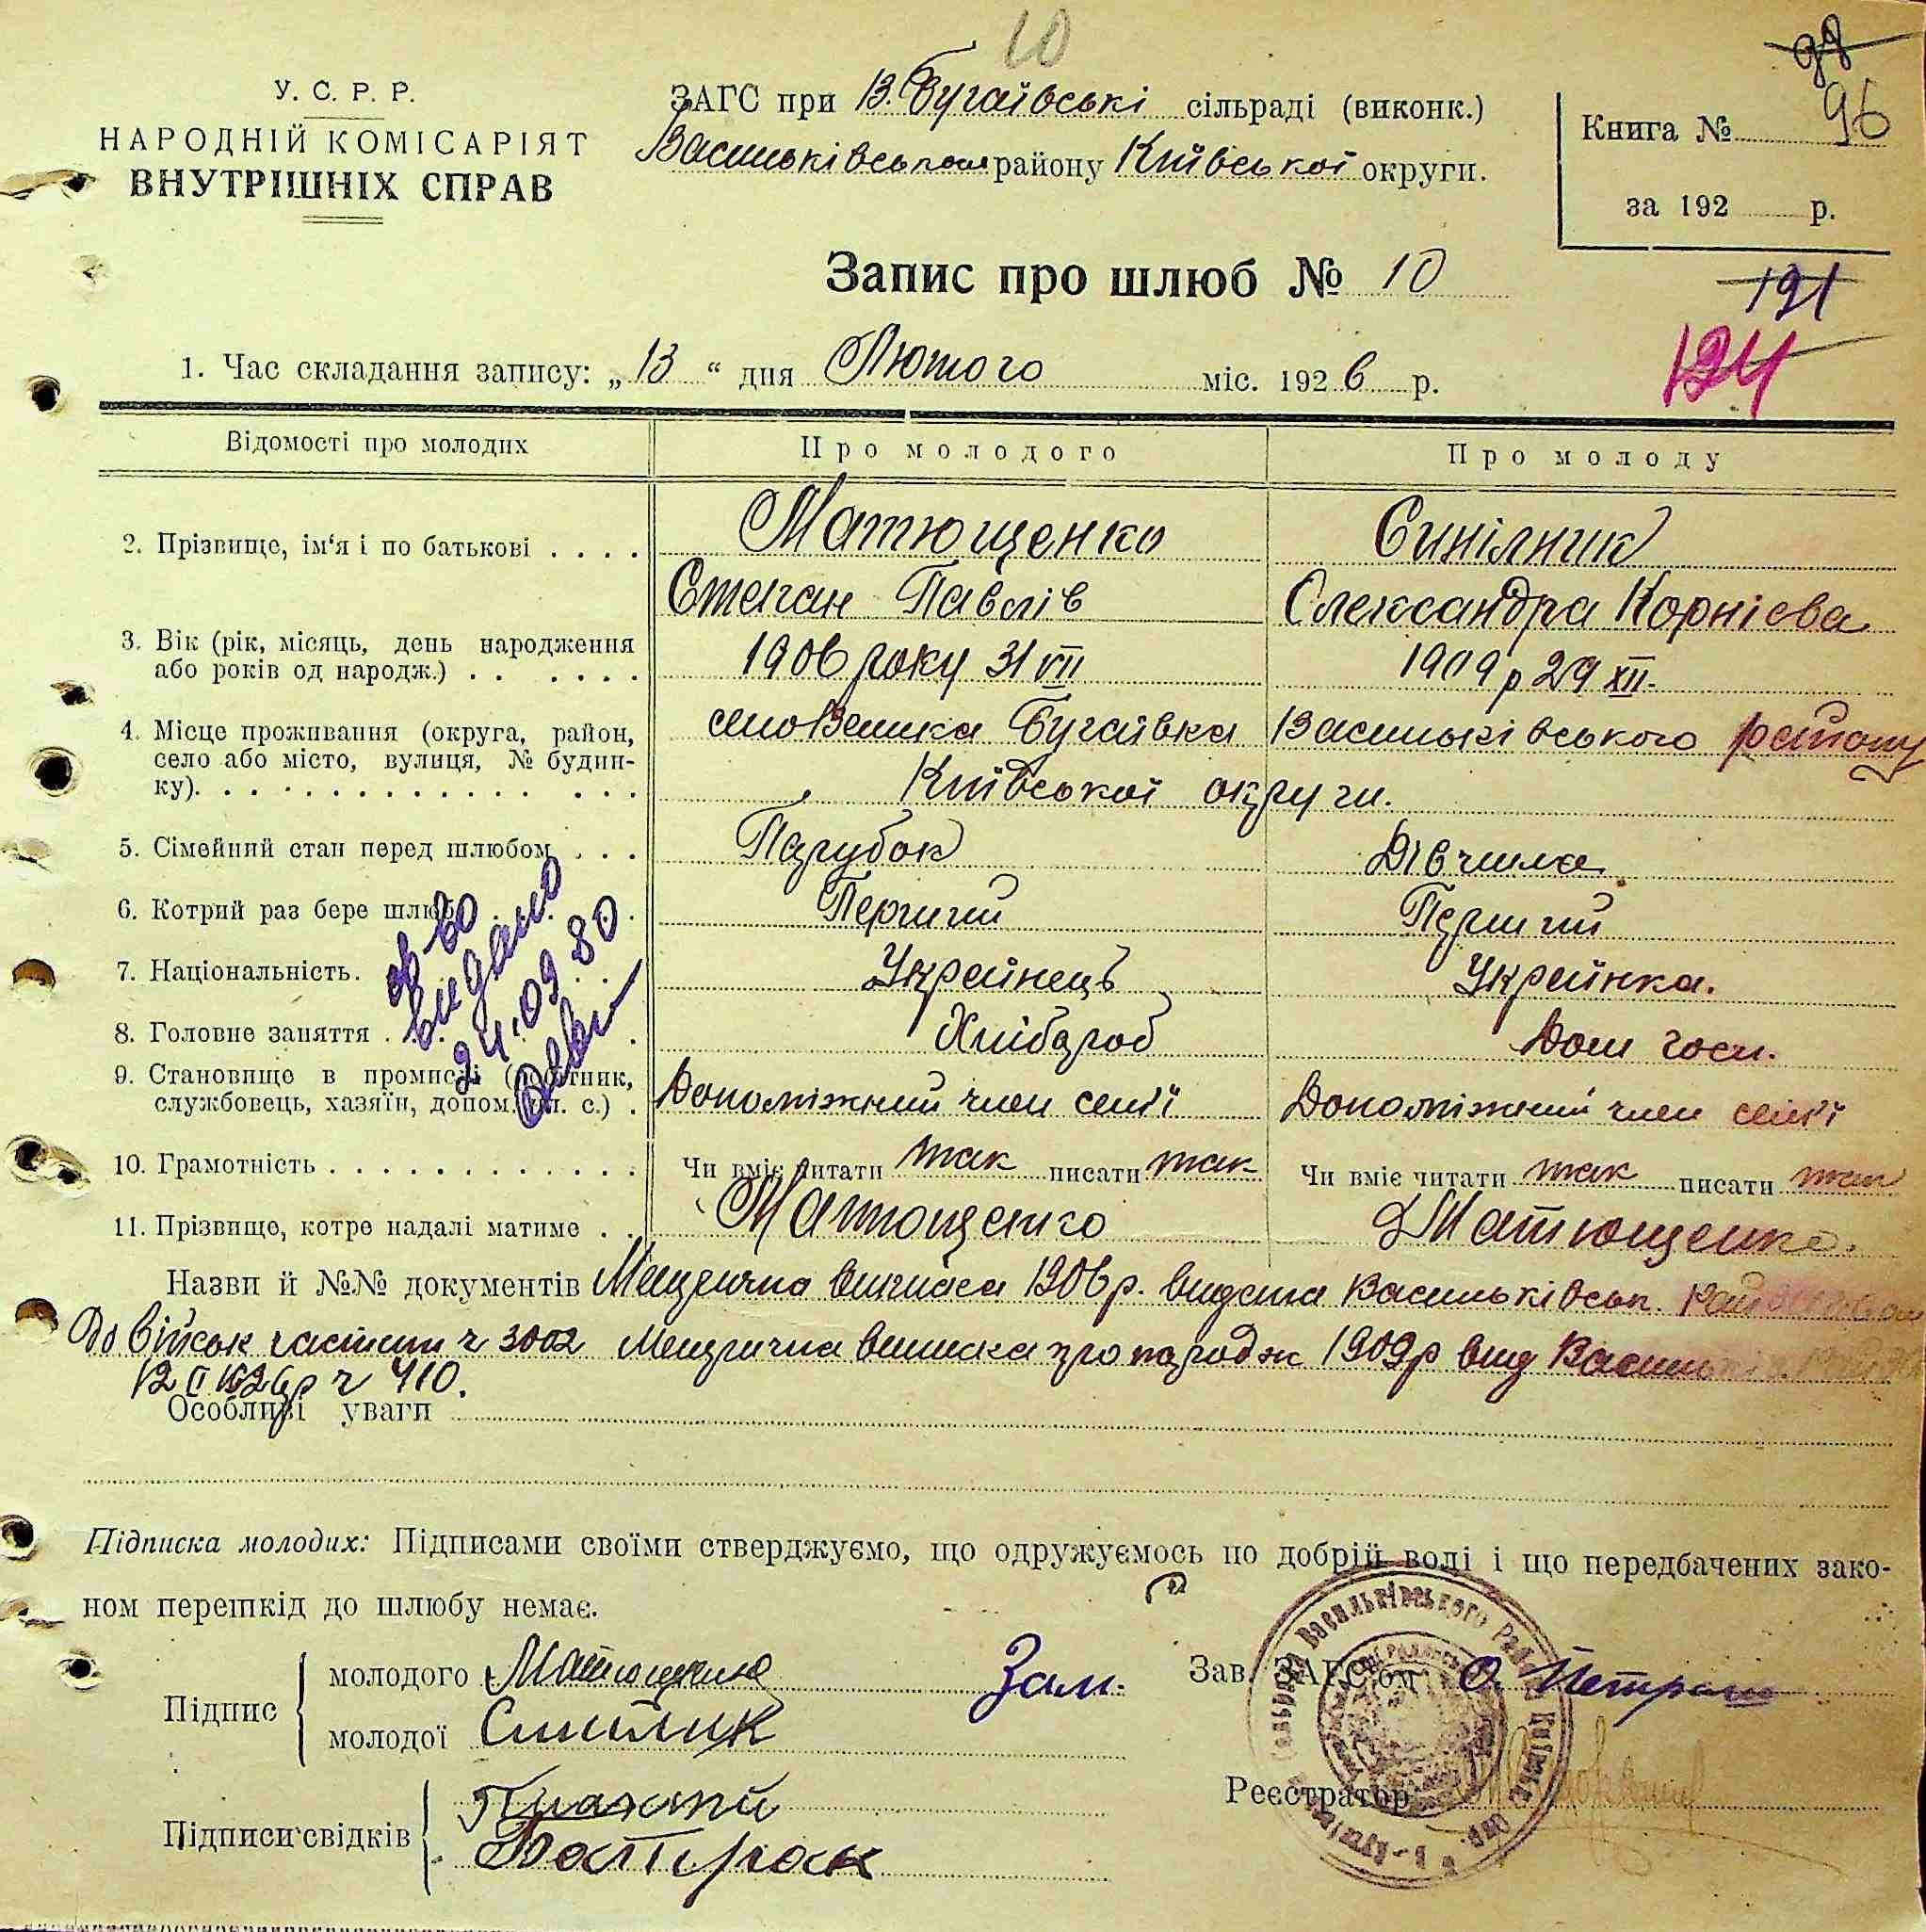 10
98
У. С. Р. Р.
НАРОДНІЙ КОМІСАРІЯТ
ВНУТРІШНІХ СПРАВ
ЗАГС при В. Бугаївські сільраді (виконк.)
Васильківськом району Київської округи.
Книга № 96
за 192 р.
Запис про шлюб № 10
121
124
1. Час складання запису: „13“ дня Лютого міс. 1926 р.
Відомості про молодих
Про молодого
Про молоду
2. Прізвище, ім‘я і по батькові . . . .
Матющенко
Степан Павлів
Синілник
Олександра Корнієва
3. Вік (рік, місяць, день народження
або років од народж.) . . . . . .
1906 року 31 VII
1909 р 29 XII.
4. Місце проживання (округа, район,
село або місто, вулиця, № будин-
ку). . . . . . . . . . . . . . .
село Велика Бугаївка Васильківського району
Київської округи.
5. Сімейний стан перед шлюбом . . .
Парубок
Дівчина
6. Котрий раз бере шлюб . . . .
Перший
Перший
7. Національність. . . .
Українець
Українка.
8. Головне заняття . . .
Хлібороб
Дом госп.
9. Становище в промислі (робітник,
службовець, хазяїн, допом. чл. с.) .
Допоміжний член семї
Допоміжний член семї
видано
24.09.80
10. Грамотність . . . . . . . . . . . . .
Чи вміє читати так писати так
Чи вміє читати так писати так
11. Прізвище, котре надалі матиме . .
Матющенко
Матющенко.
Назви й №№ документів Метрична виписа 1906 р. видана Васильківськ.
До військ частини ч 3002 Метрична виписка про народж 1909 р вид
ч 410.
Особливі уваги
Підписка молодих: Підписами своїми стверджуємо, що одружуємось по добрій волі і що передбачених зако-
ном перешкід до шлюбу немає.
Підпис
молодого Матющенко
молодої Синілник
Зам. Зав. ЗАГС‘ом О. Петраш
Реєстратор
Підписи свідків
Батрак
Васильківського